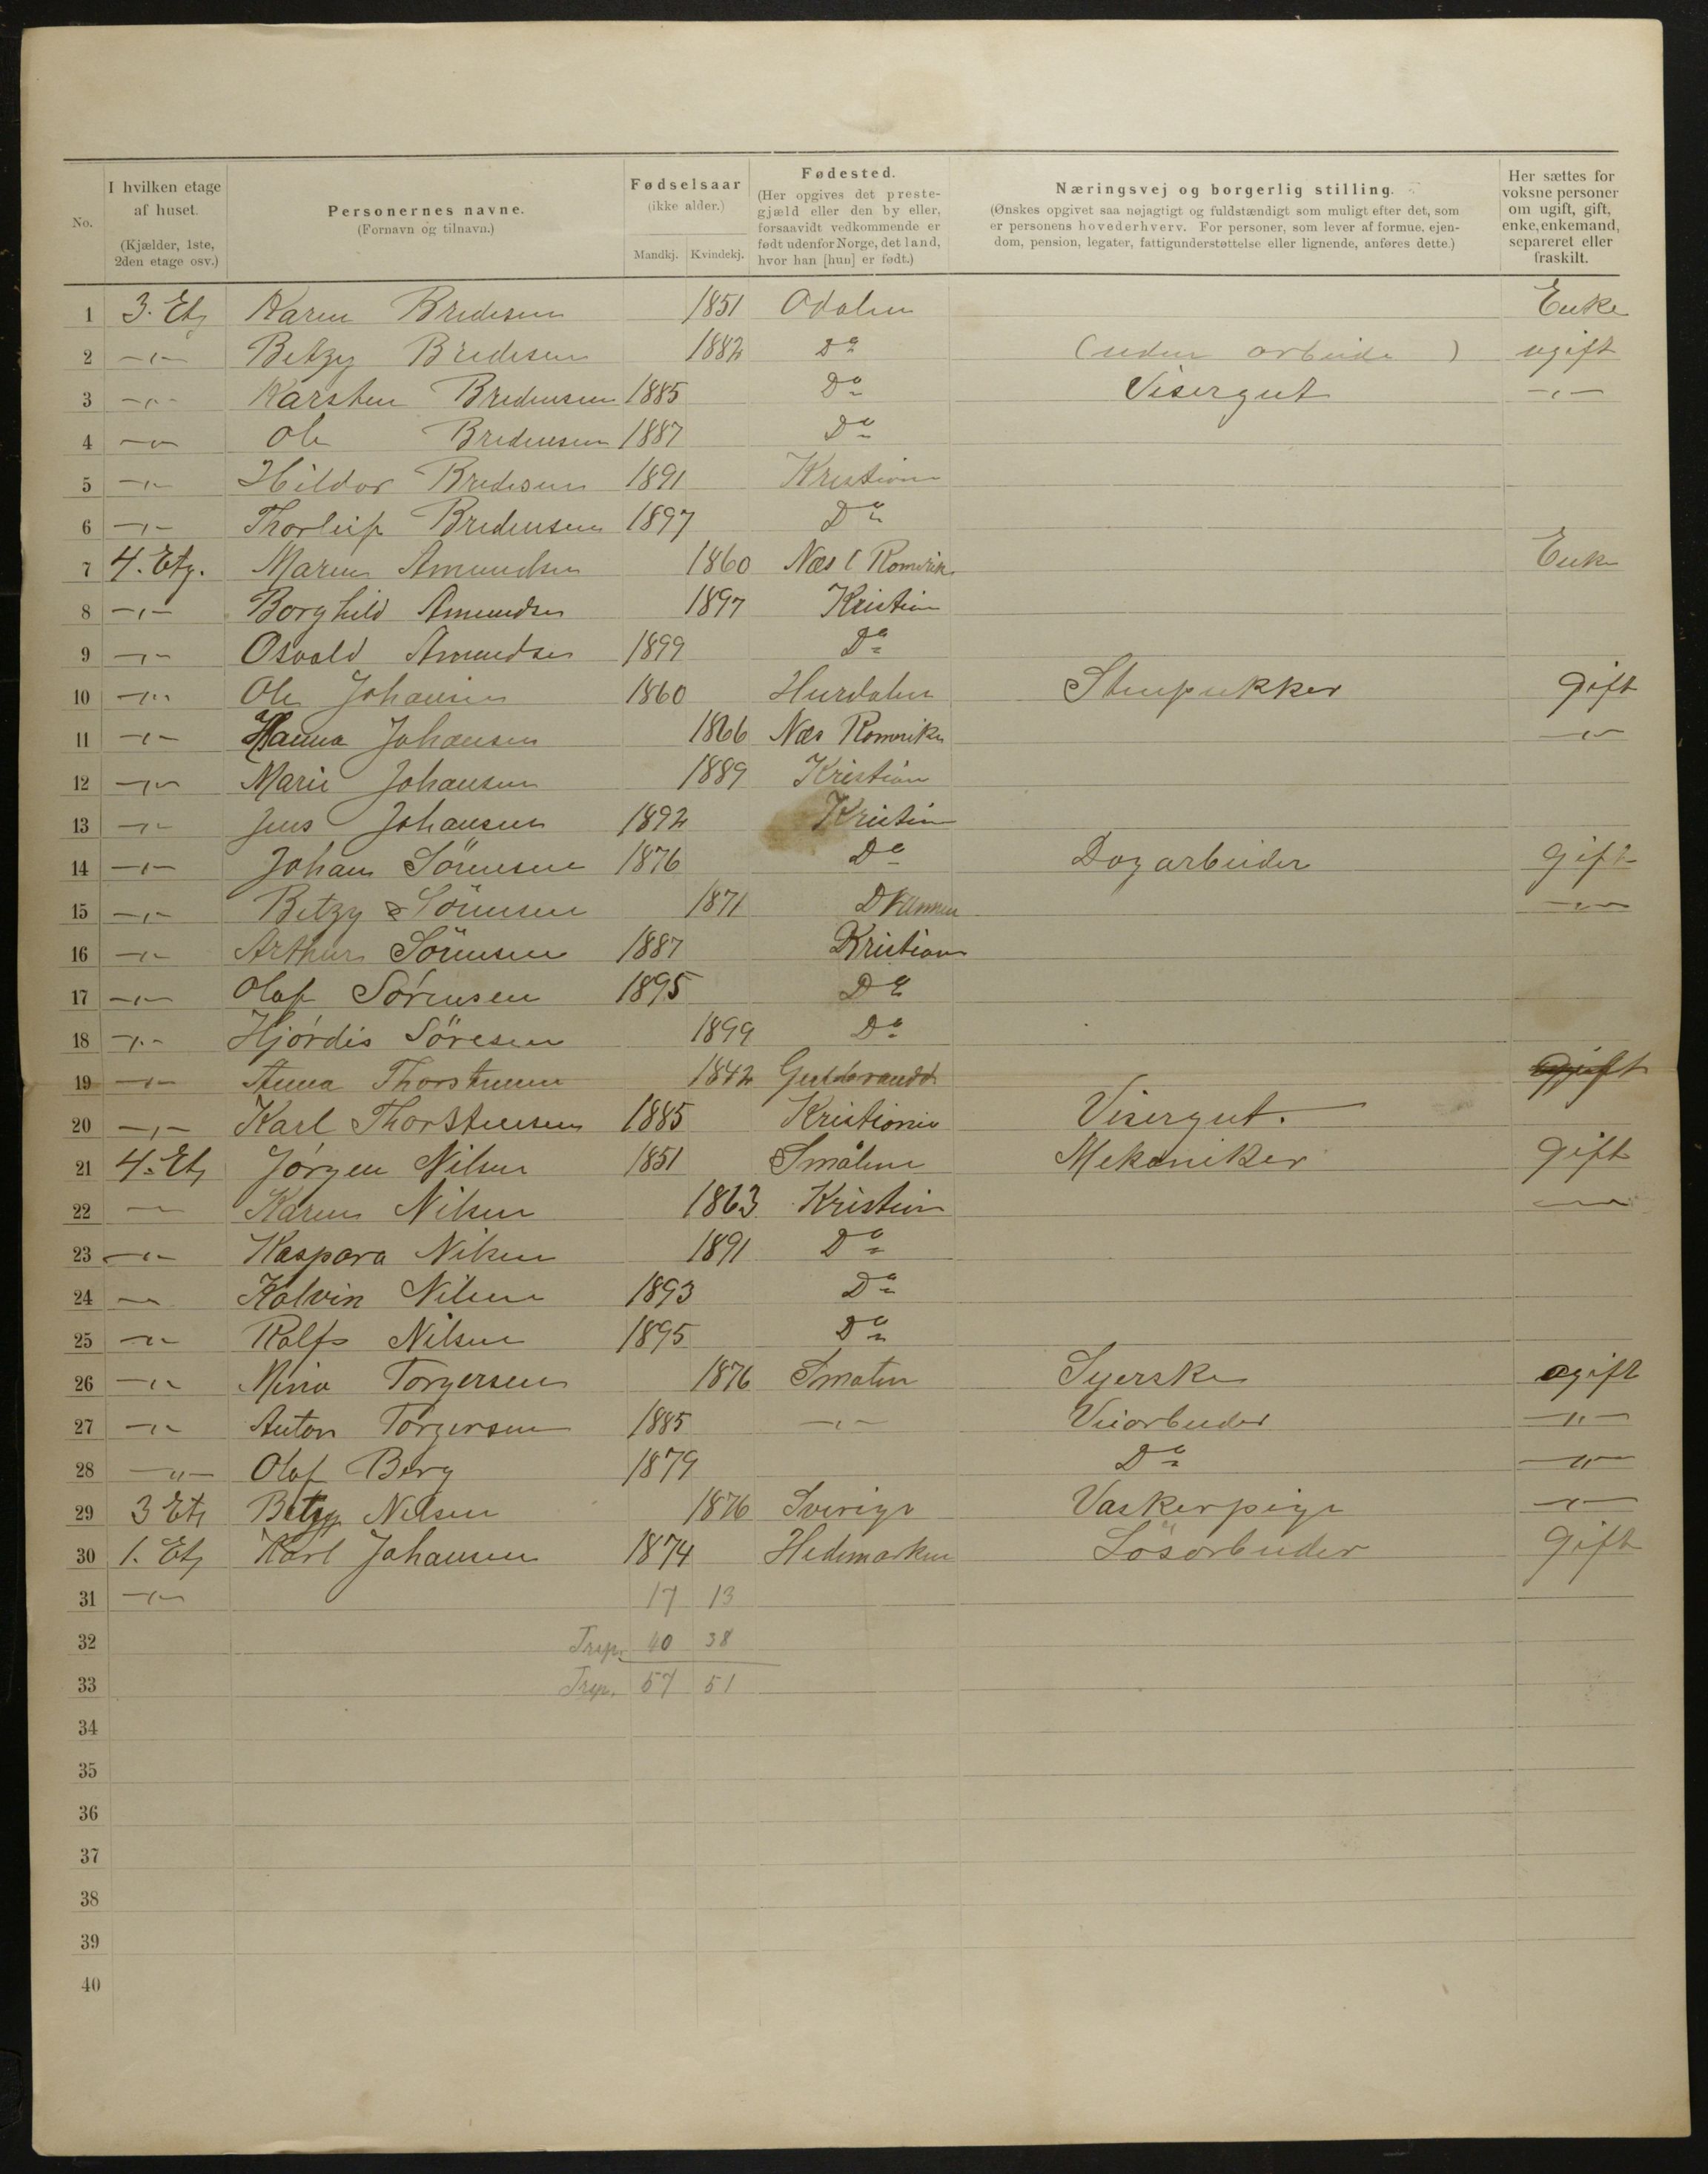 No. I hvilken etage af huset. (Kjælder, 1ste, 2den etage osv.) Personernes navne. (Fornavn og tilnavn.) Fødselsaar (ikke alder.) Mandkj. Kvindekj. Fødested. (Her opgives det prestegjæld eller den by eller, forsaavidt vedkommende er født udenfor Norge, det land, hvor han [hun] er født.) Næringsvej og borgerlig stilling. (Ønskes opgivet saa nøjagtigt og fuldstændigt som muligt efter det, som er personens hovederhverv. For personer, som lever af formue, ejendom, pension, legater, fattigunderstøttelse eller lignende, anføres dette.) Her sættes for voksne personer om ugift, gift, enke, enkemand, separeret eller fraskilt.
1 3. Etg Karen Bredesen 1851 Odalen Enke
2 -"- Betzy Bredesen 1882 Do (uden arbeide) ugift
3 -"- Karsten Bredensen 1885 Do Visergut -"-
4 -"- Ole Bredensen 1887 Do
5 -"- Hildor Bredesen 1891 Kristian
6 -"- Thorleif Bredensen 1897 Do
7 4. Etg. Maren Amundsen 1860 Næs ( Romerik Enke
8 -"- Borghild Amundsen 1897 Kristian
9 -"- Osvald Amundsen 1899 Do
10 -"- Ole Johansen 1860 Hurdalen Stenpukker gift
11 -"- Hanna Johansen 1866 Næs Romerike -"-
12 -"- Marie Johansen 1889 Kristian
13 -"- Jens Johansen 1892 Kristian
14 -"- Johan Sörensen 1876 Do Dagarbeider gift
15 -"- Betzy Sörensen 1871 Drammen -"-
16 -"- Arthur Sörensen 1887 Kristian
17 -"- Olaf Sörensen 1895 Do
18 -"- Hjördis Söresen 1899 Do
19 -"- Anna Thorstensen 1842 Guldbrandd
20 -"- Karl Thorstensen 1885 Kristiania Visergut.
21 4. Etg Jörgen Nilsen 1851 Smålene Mekaniker gift
22 -"- Karen Nilsen 1863 Kristian -"-
23 -"- Kaspara Nilsen 1891 Do
24 -"- Kalvin Nilsen 1893 Do
25 -"- Rolf Nilsen 1895 Do
26 -"- Mina Torgersen 1876 Smalen Syerske ugift
27 -"- Anton Torgersen 1885 -"- Veiarbeider -"-
28 -"- Olaf Berg 1879 Do -"-
29 3 Etg Betzy Nelsen 1876 Sverige Vaskerpige -"-
30 1. Etg Karl Johansen 1874 Hedemarken Lösarbeider gift
31 -"- 17 13
32 Trsp. 40 38
33 Trsp. 57 51
34
35
36
37
38
39
40